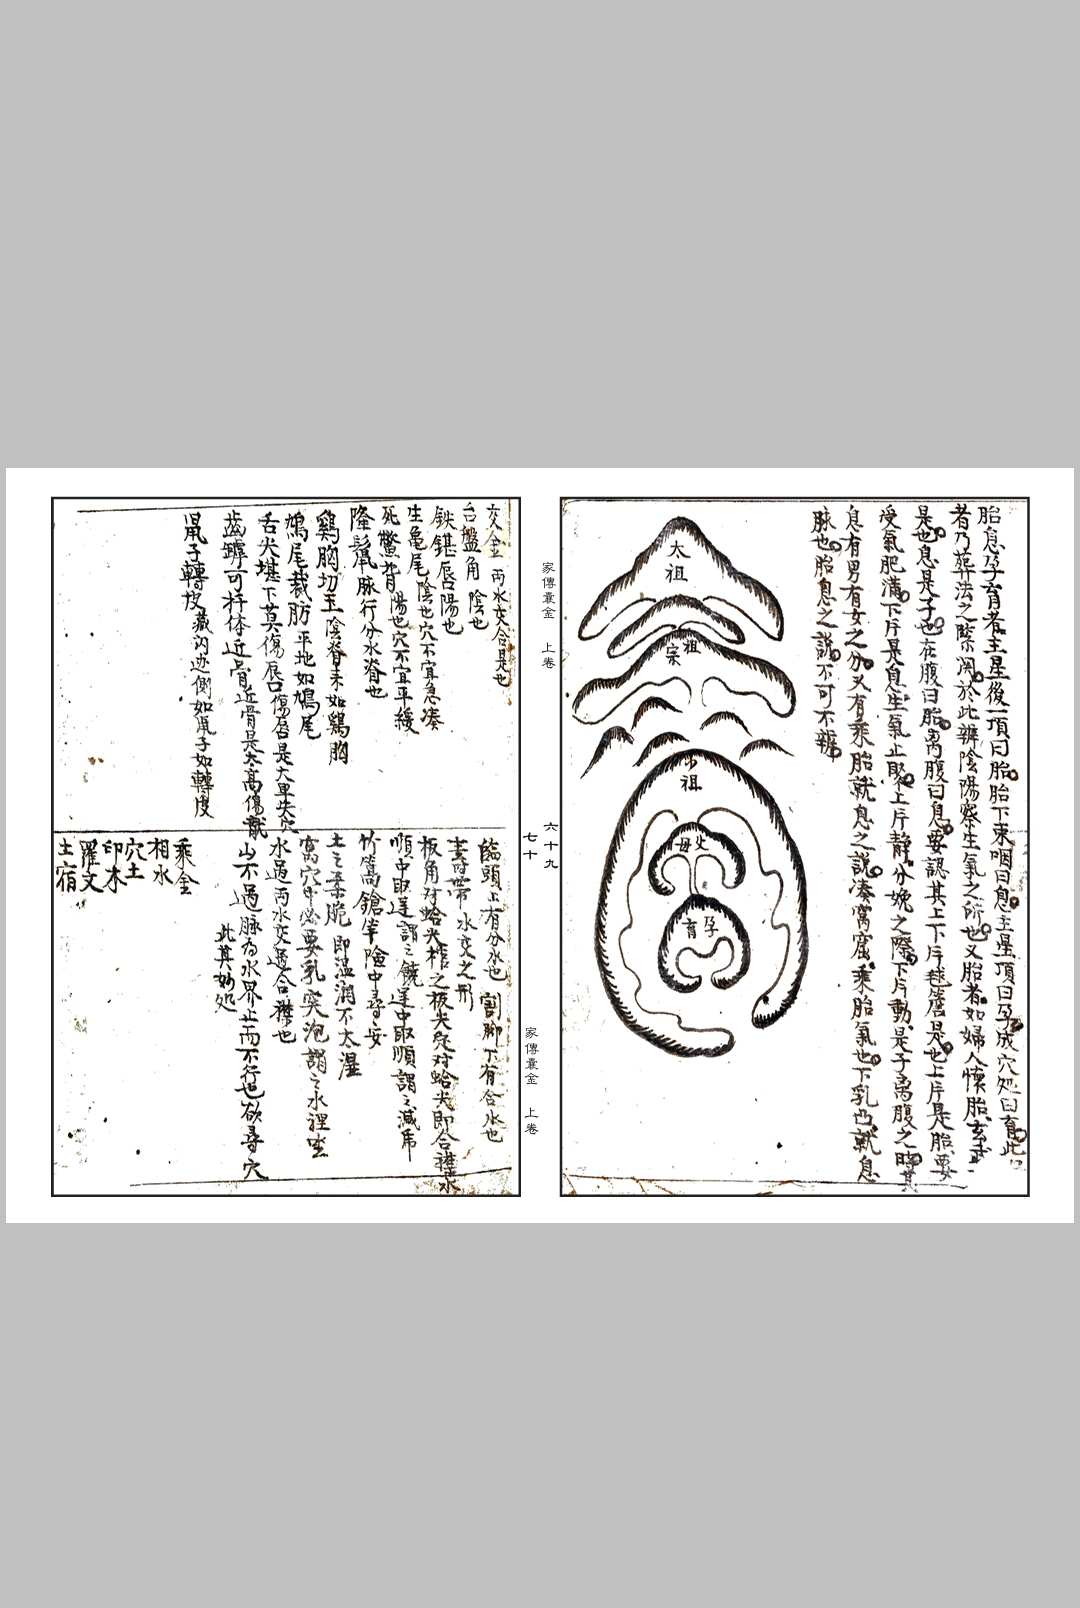 胎息孕育者主星後一頂曰胎胎下束咽曰息主星頂曰孕成穴処曰育此
者乃葬法之際関於此辨陰陽察生氣之所也又胎者如婦人懷胎
是也息是子也在腹曰胎离腹曰息要認其上下片是也上片是胎要
受氣肥滿下片是息生氣止聚上片静分娩之際下片動是子离腹之時其
息有男有女之分又有乘胎就息之說凑窩窟乘胎氣也下乳凸就息
脉也胎息之說不可不辨
太祖
祖宗
少祖
父母
孕育
家傳囊金 上卷
六十九
七十
家傳囊金 上卷
交金 兩水交合是也
台盤角 陰也
鉄鍖唇陽也
生亀尾 陰也穴不宜急凑
死鱉背 陽也穴不宜平緩
隆鬆脈行分水脊也
鷄胸切玉 陰脊来如鷄胸
鳩尾裁肪 平地如鳩尾
舌尖堪下莫傷唇 傷唇是大卑失穴
齒罅可拝体近骨 近骨是太高傷龍
鼠子轉皮 藏沟迹側如鼠子如轉皮
臨頭上有分水也 割脚下有合水也
水交之形
板角对蛤尖 之板尖是对蛤尖即合襟水
順中取逆謂之饒 逆中取順謂之減
竹篙鎗竿險中尋妥
土之柔脆 即温潤不太濕
窩穴中必要乳突泡謂之水裡坐
水過兩水交過合襟也
山不過脉为水界止而不行也欲尋穴
此其妙処
乘金
相水
穴土
印木
羅文
土宿